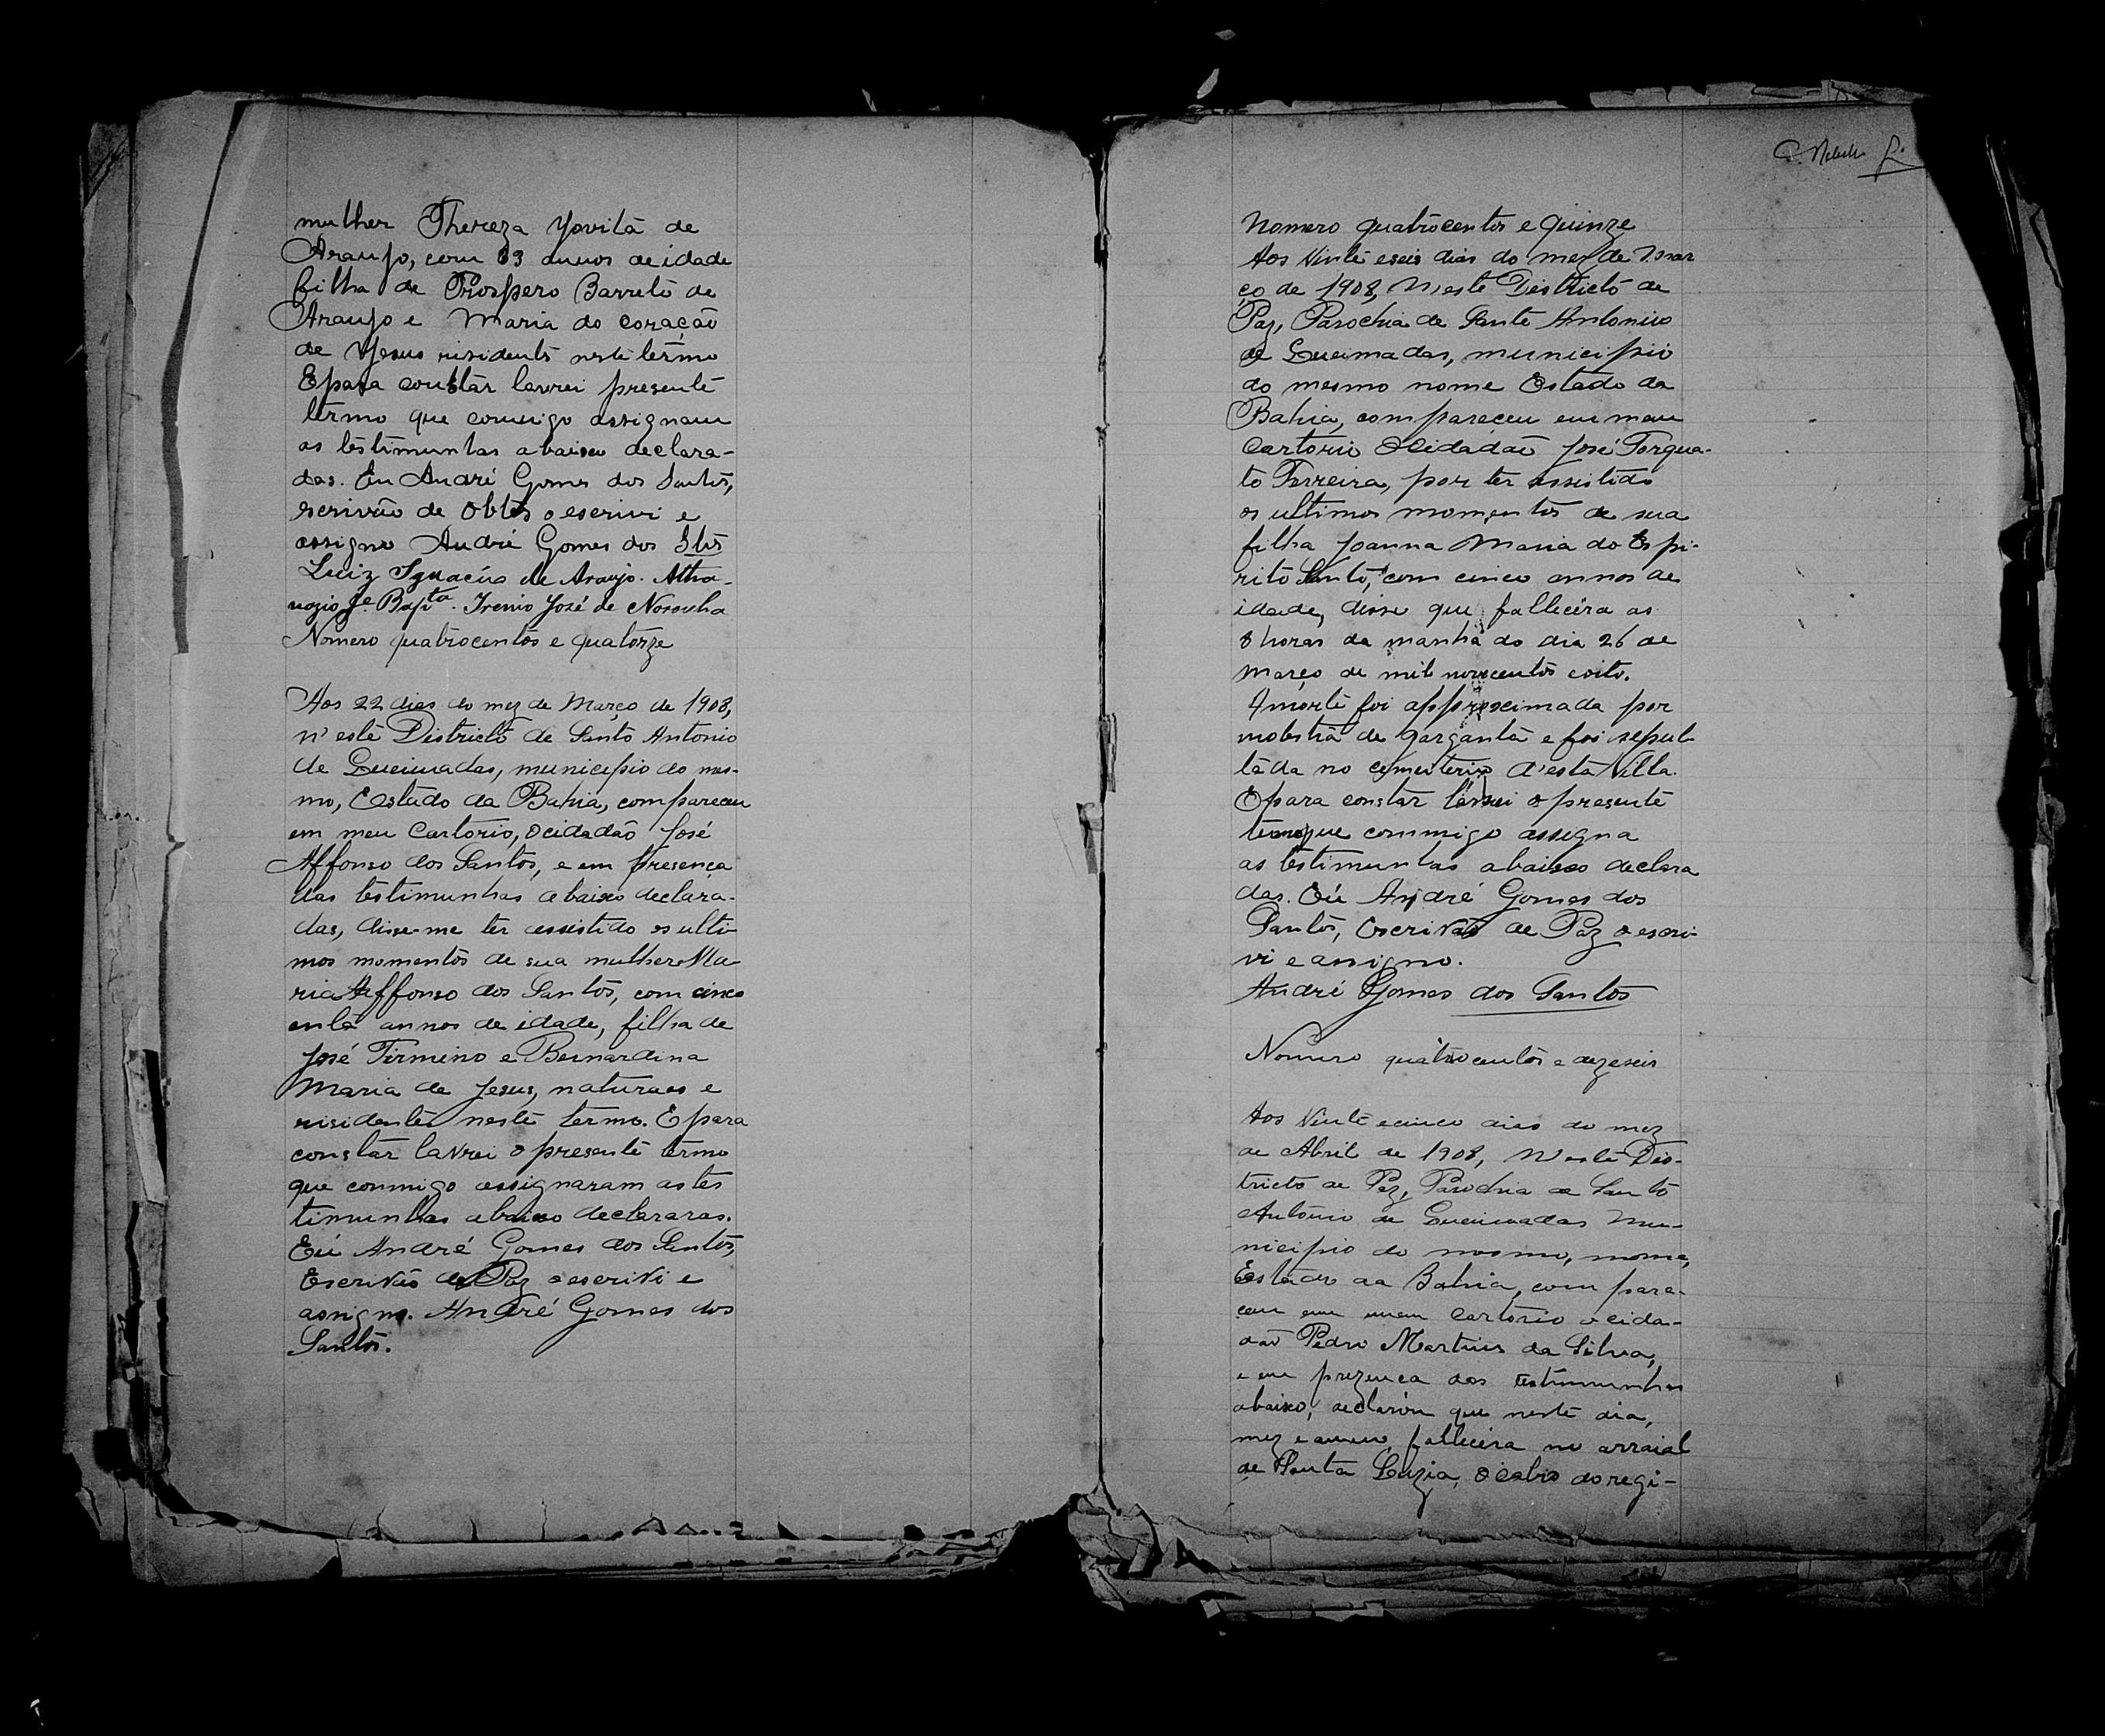 mulher Thereza Yovita de
Araujo, com 63 annos de idade
filha de Prospero Barreto de
Araujo e Maria do coração
de Yesus risidents neste termo
E para constar lavrei presente
termo que commigo assignam
as testimunhas abaixo declara-
das. Eu André Gomes dos Santos,
escrivão de obtos o escrivi e
assigno André Gomes dos Stos
Luiz Ignacio de Araujo. Atha-
nazio Je. Bapta. Irenio José de Noronha
Nomero quatrocentos e quatorze
Aos 22 dias do mez de Março de 1908,
n'este Districto de Santo Antonio
de Queimadas, municipio do mes-
mo, Estado da Bahia, compareceu
em meu Cartorio, o cidadão José
Affonso dos Santos, e em presença
das testimunhas abaixo declara-
das, disse-me ter assistido os ulti-
mos momentos de sua mulher Ma-
ria Affonso dos Santos, com cinco
enta annos de idade, filha de
José Firmino e Bernardina
Maria de Jesus, naturaes e
risidentes neste termo. E para
constar lavrei o presente termo
que conmigo assignaram as tes
timunhas abaixo declararas.
Eú André Gomes dos Santos,
Escrivão de Paz o escrivi e
assigno. André Gomes dos
Santos.
Nomero quatrocentos e quinze
Aos Vinte e seis dias do mez de Mar
ço de 1908, N'este Destricto de
Paz, Parochia de Sante Antonio
de Queimadas, municipio
do mesmo nome Estado da
Bahia, compareceu em meu
Cartorio o Cidadão José Torqua-
to Ferreira, por ter assistido
os ultimos momentos de sua
filha Joanna Maria do Espi-
rito Santo, com cinco annos de
idade, disse que fallecêra as
8 horas da manhã do dia 26 de
Março de mil novecentos e oito.
A morte foi approximada por
molestia de garganta e foi sepul-
tada no cemiterio d'esta Villa.
E para constar lavrei o presente
termo que commigo assegna
as testimunhas abaixo declara
das. Eú André Gomes dos
Santos, Escrivão de Paz o escri-
vi e assigno.
André Gomes dos Santos
Nomero quatrocentos e dezeseis
Aos Vinte e cinco dias do mez
de Abril de 1908, N'este Dis-
tricto de Paz, Parochia de Santo
Antonio de Queimadas Mu-
nicipio do mesmo, nome,
Estado da Bahia, compare-
ceu em meu Cartorio o cida-
dão Pedro Martins da Silva,
e em prezença das testimunhas
abaixo, declarou que neste dia,
mez e anno, fallecêra no arraial
de Santa Luzia, o cabo do regi-